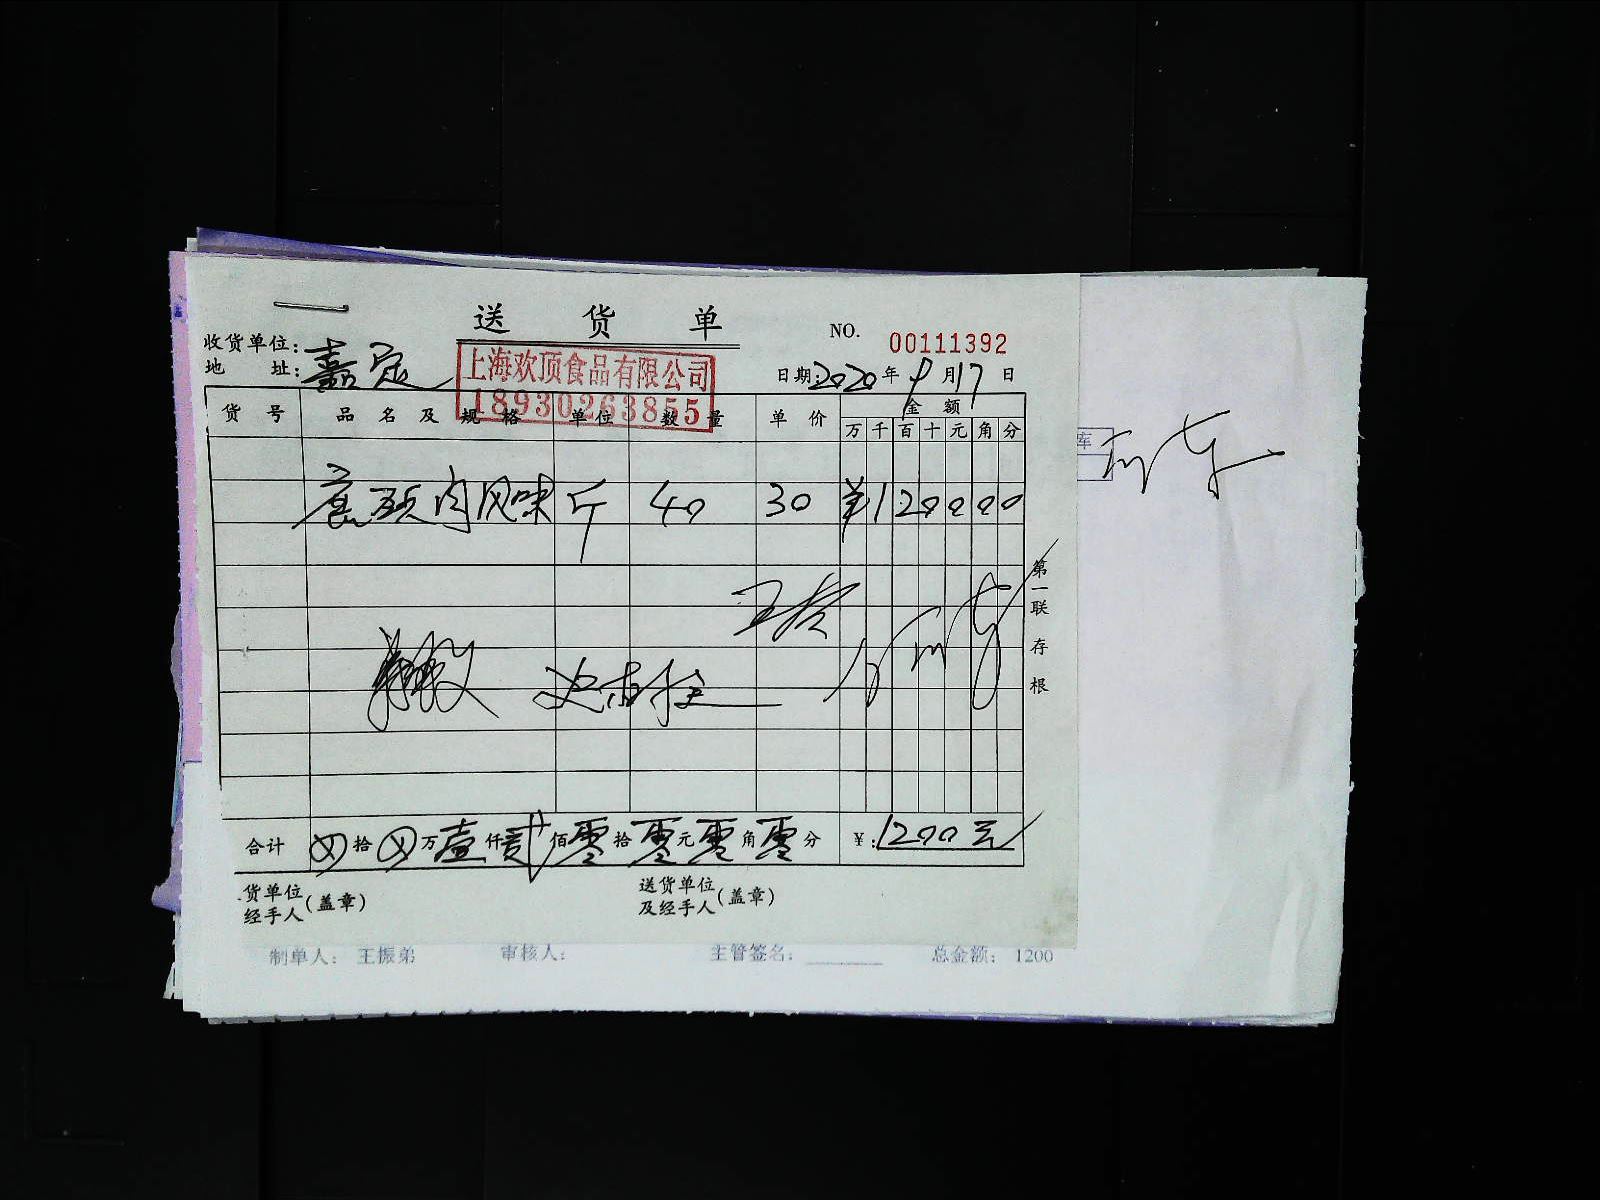 送 货 单
NO. 00111392
收货单位:
地 址: 嘉定
上海欢顶食品有限公司
18930263855
日期: 2020 年 9 月 17 日
货 号 品 名 及 规 格 单位 数 量 单 价 金 额
万 千 百 十 元 角 分
库
肉风味 斤 40 30 ¥ 1 2 0 0 0 0
第一联 存根
合计 拾 万 壹 仟 贰 佰 零 拾 零 元 零 角 零 分 ¥: 1200元
货单位
经手人(盖章)
送货单位
及经手人(盖章)
制单人: 王振弟 审核人: 主管签名: 总金额: 1200